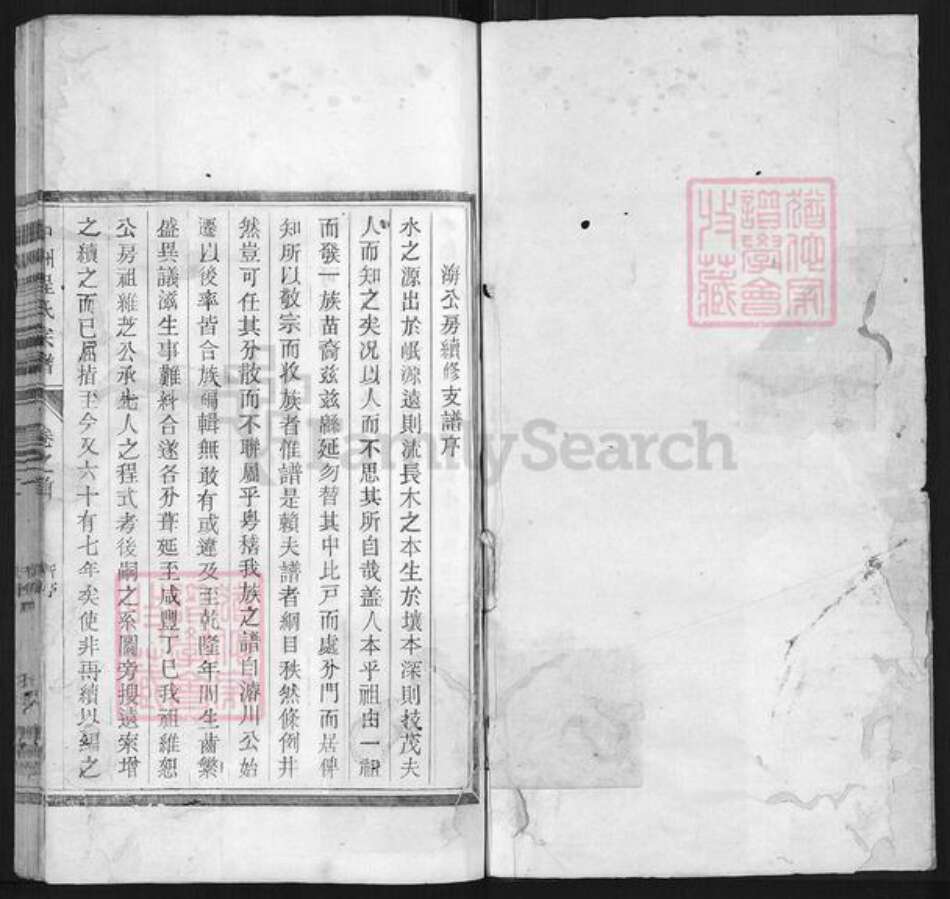 海公房續修支譜序
水之源出於岷源遠則流長木之本生於壤本深則技茂夫
人而知之矣况以人而不思其所自哉蓋人本乎祖由一祖
而發一族苗裔兹兹緜延勿替其中比戸而處分門而居俾
知所以敬宗而收族者惟譜是賴夫譜者綱目秩然條例井
然豈可任其分散而不聯屬乎粤稽我族之譜自濬川公始
遷以後率皆合族編輯無敢有或違及至乾隆年間生齒繁
盛異議滋生事難料合遂各分葺延至咸豐丁巳我祖維恕
公房祖維芝公承先人之程式考後嗣之系圖旁搜遠索增
之續之而已屈指至今又六十有七年矣使非再續以編之
程氏宗譜
卷之首
譜學會
收藏
FamilySearch